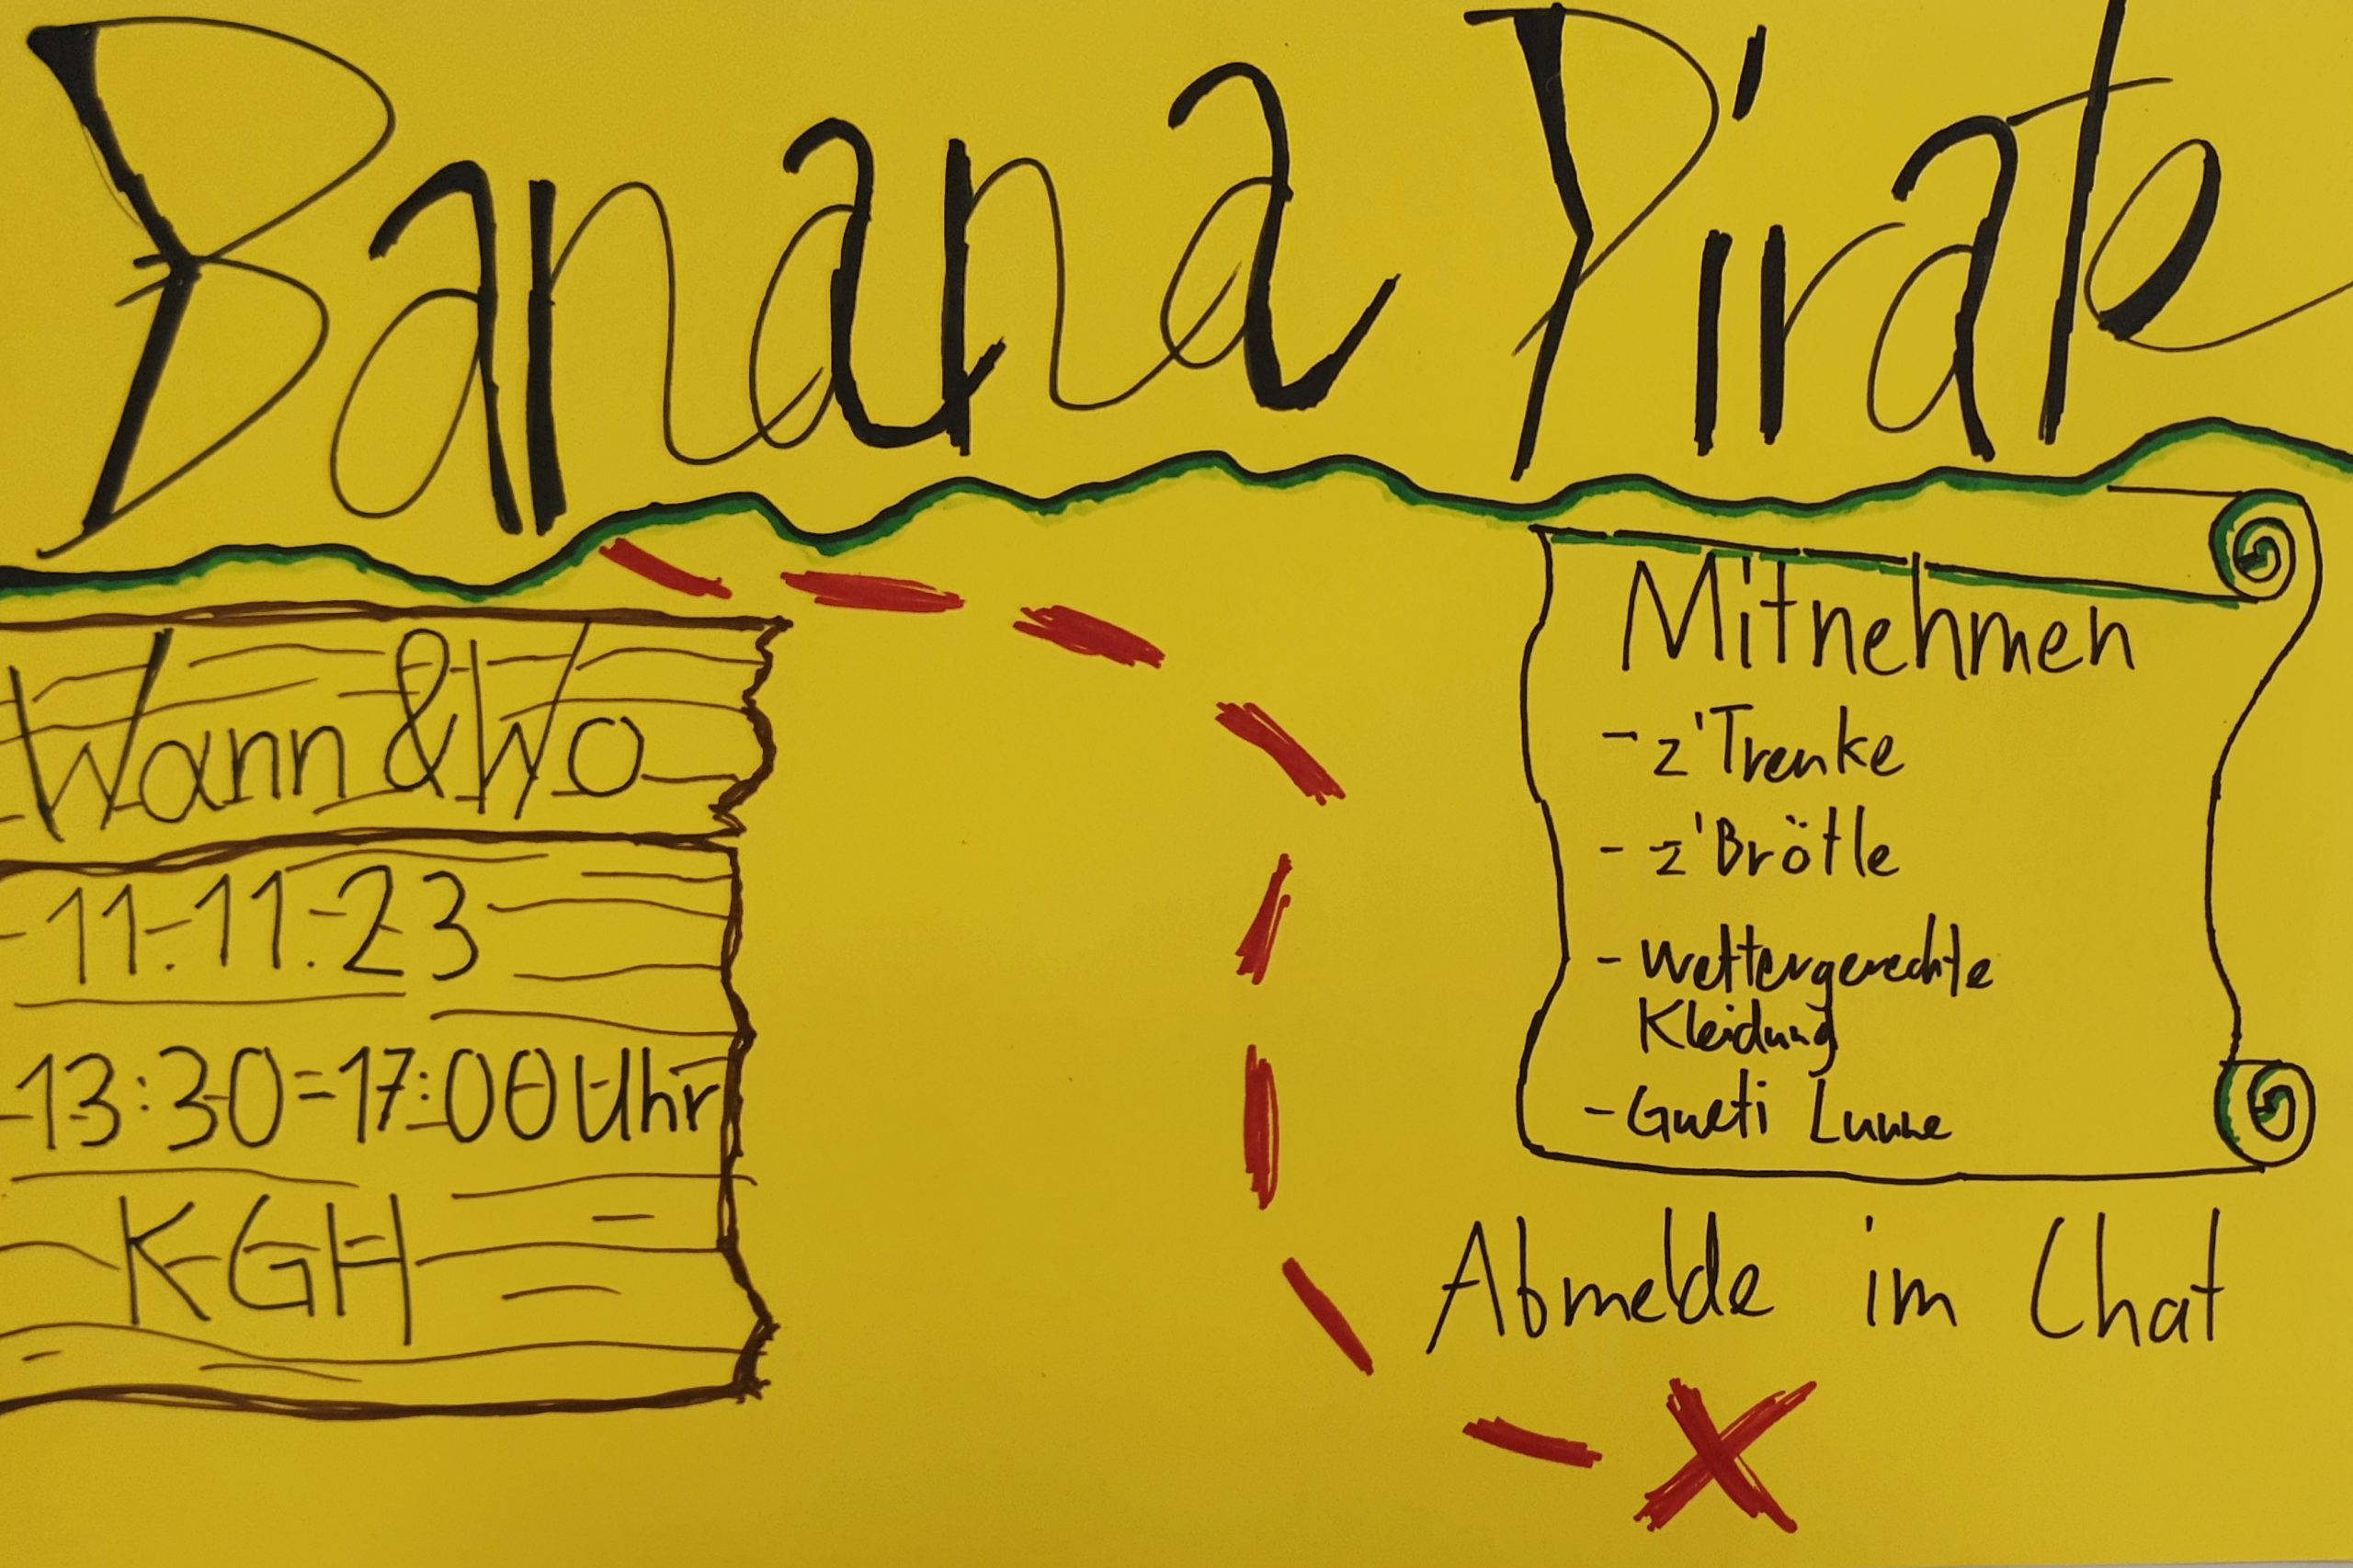 Banana Pirate
Wann & Wo
11.11.23
13:30-17:00 Uhr
KGH
Mitnehmen
- z'Trenke
- z'Brötle
- Wettergerechte
Kleidung
- Gueti Lunne
Abmelde im Chat